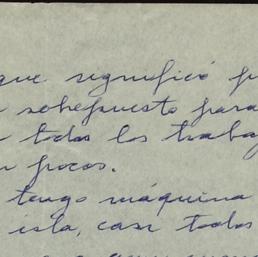 que significó p
sobrepuesto para
todos los trabaj
pocos.
tengo máquina
isla, casi todos